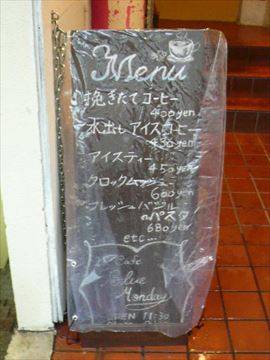 Menu
挽きたてコーヒー
400yen
水出しアイスコーヒー
450yen
アイスティー
450yen
クロックムッシュー
600yen
フレッシュバジル
のパスタ
680yen
etc...
Cafe
Blue
Monday
OPEN 11:30